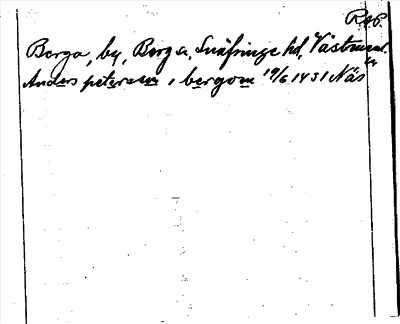 RAP.
Berga, by, Berg sn, Snäfringe hd, Västmanl.
Anders petersen i bergom 19/6 1431 Näs